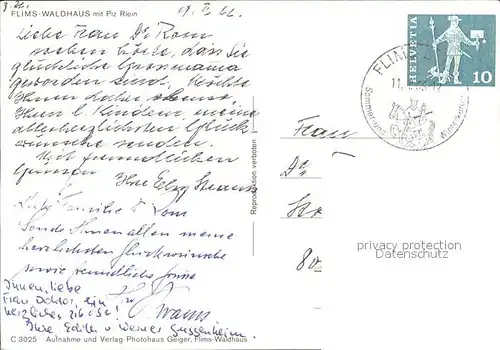 3.26.
FLIMS-WALDHAUS mit Piz Riein
9. II. 66.
Liebe Frau Dr Rom
soeben höre, dass Sie
glückliche Grossmama
geworden sind. Möchte
Ihnen daher
Ihren l. Kindern meine
allerherzlichsten Glück
wünsche senden.
Mit freundlichen
Grüssen Ihre Elsy Straus
Liebe Familie Dr Rom
Sende Ihnen allen meine
herzlichsten Glückwünsche
sowie freundliche Grüsse
Straus
Ihnen, liebe
Frau Doktor, ein
herzliches
Ihre Edith u Werner Guggenheim.
C 3025 Aufnahme und Verlag Photohaus Geiger, Flims-Waldhaus
Reproduktion verboten
HELVETIA
10
FLIMS
11.
Sommer und
Winterkurort
Frau
Dr
80
privacy protection
Datenschutz